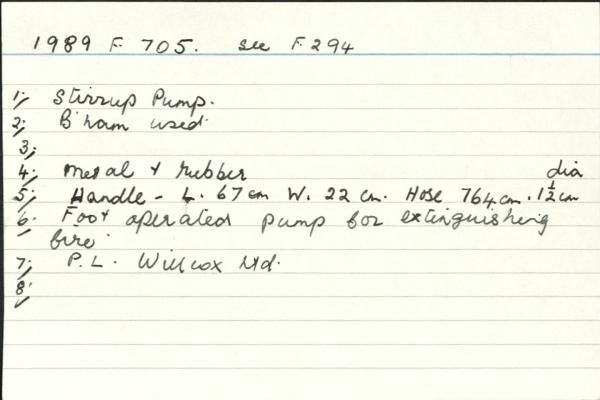 1989 F 705. see F 294
1; Stirrup Pump.
2; B'ham used.
3;
4; Metal + rubber dia
5; Handle - L. 67 cm W. 22 cm. Hose 764 cm. 1½ cm
6. Foot operated pump for extinguishing
fire
7; P.L. Willcox Ltd.
8;